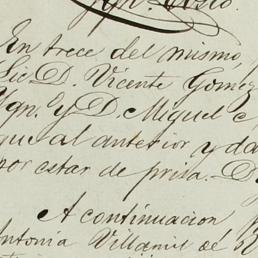 En trece del mismo,
Lic D. Vicente Gomez
Ygn. y D. Miguel C
que al anterior y da
por estar de prisa. D
A continuacion
Antonia Villamil de